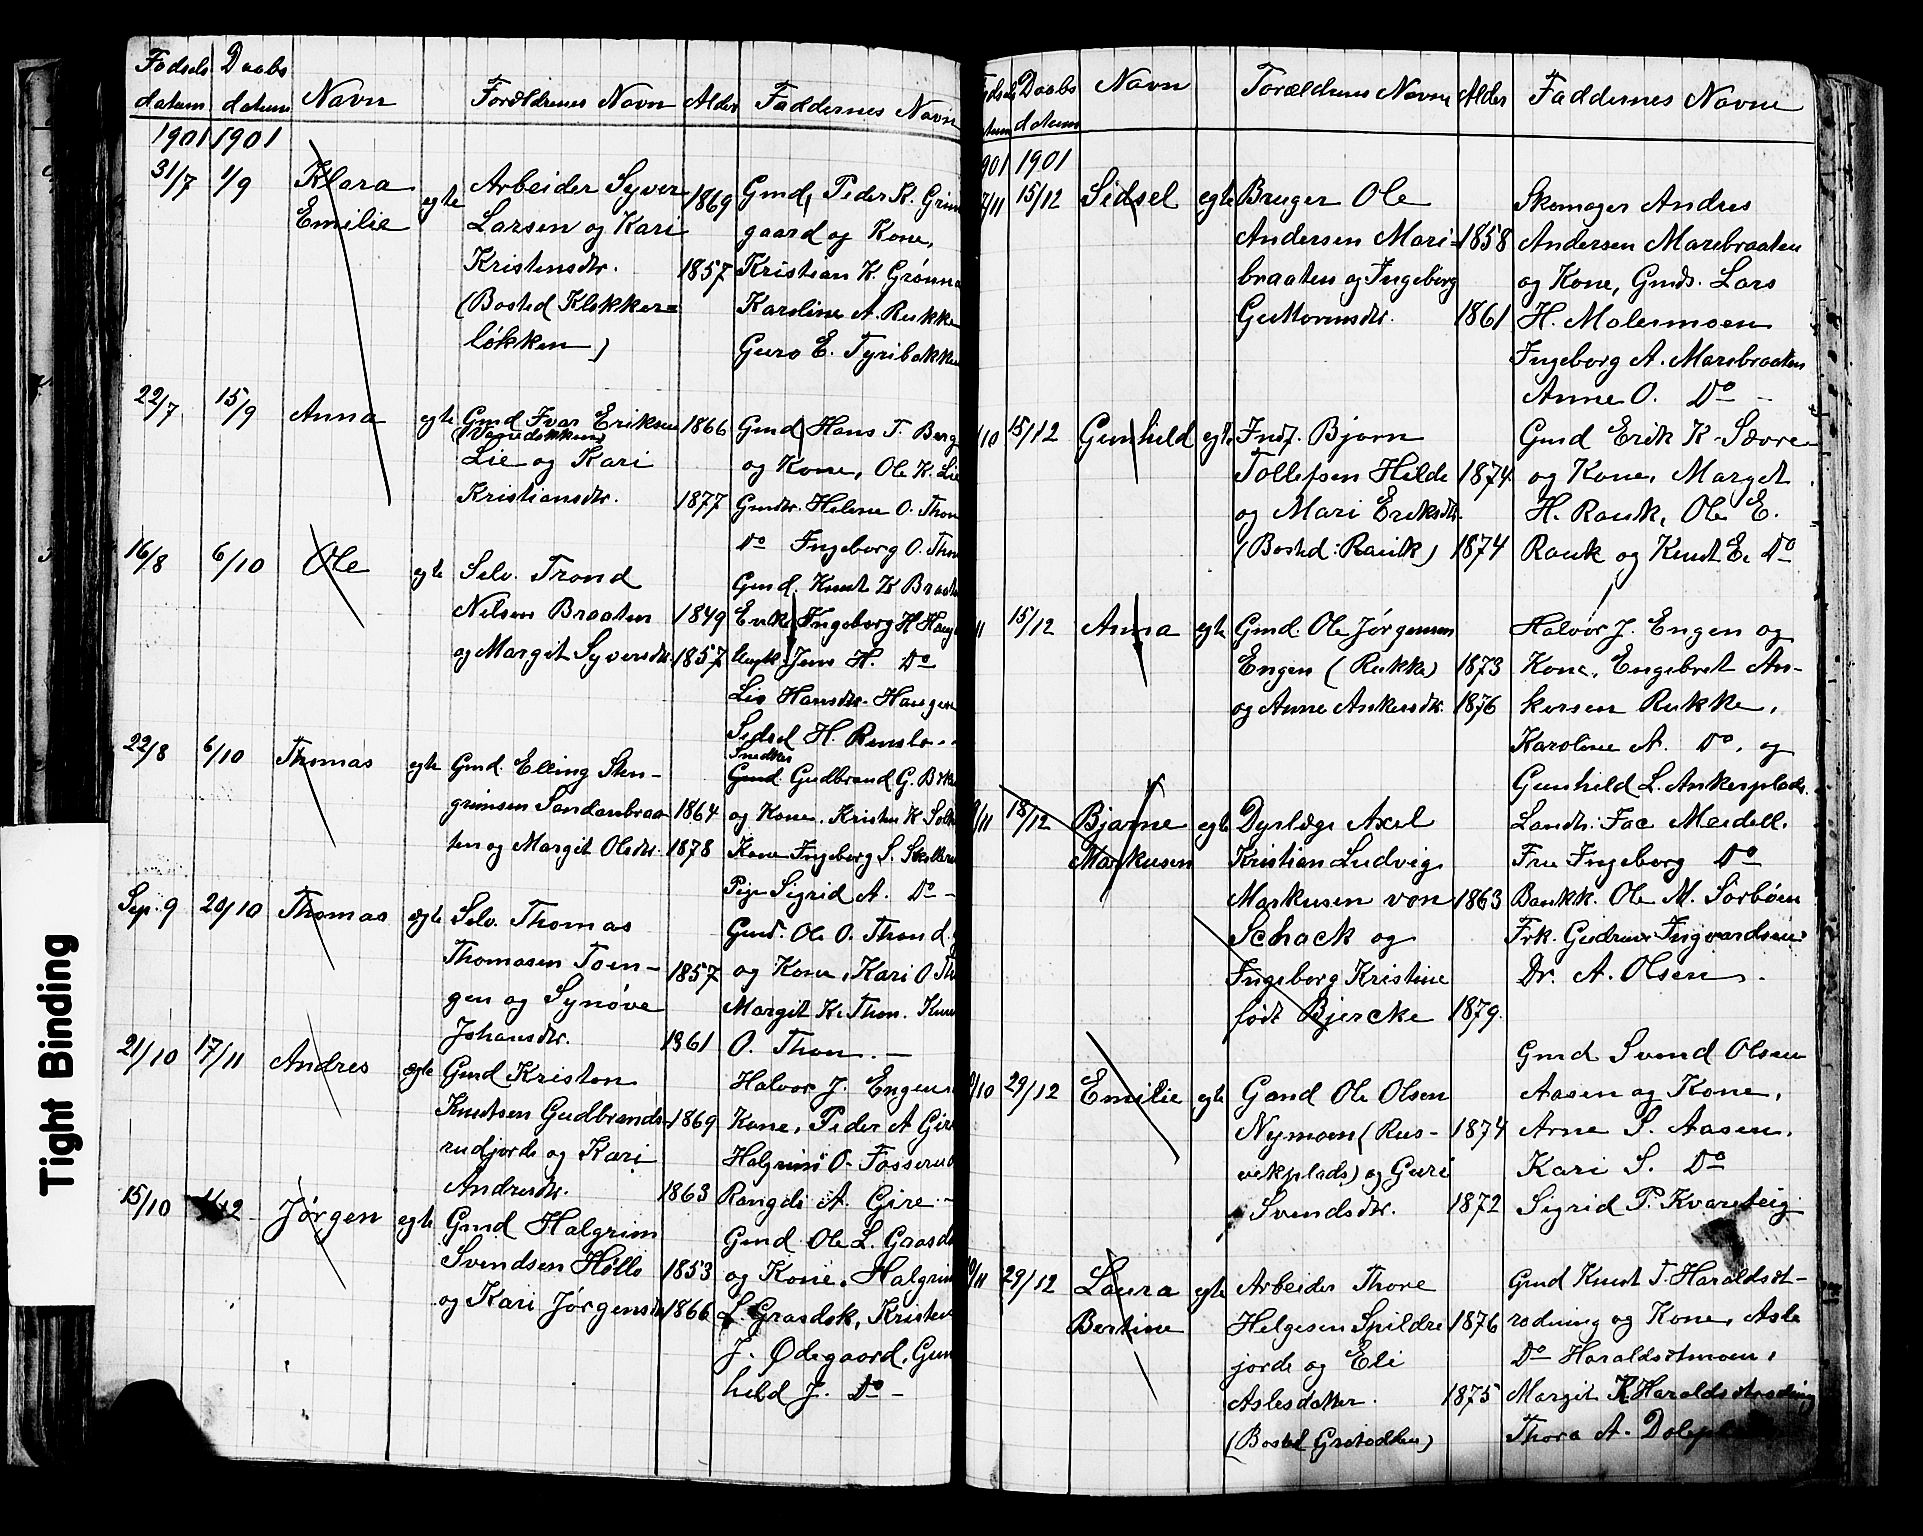 Tight Binding
Fødsels Daabs
datum datum Navn Forældrenes Navn Alder Faddernes Navn
1901 1901
31/7 1/9 Klara egte Arbeider Syver 1869 Gmd, Peder K.
Emilie Larsen og Kari gaard og Kone,
Kristensdtr. 1857 Kristian K.
(Bosted Klokker= Karoline A. Rukke
løkken) Guro E.
22/7 15/9 Anna egte Gmd Ivar Eriksen 1866 Gmd Hans T. Berg
Lie og Kari og Kone, Ole K. Lie
Kristiansdtr. 1877 Gmdtr. Helene O. Thon
Do Ingeborg O.
16/8 6/10 Ole egte Selv. Trond Gmd. Knut K
Nelsen Braaten 1849 Enke Ingeborg H
og Margit Syversdtr. 1857 Ungk. Jens H. Do
Liv Hansdtr. Haugen
Sidsel H.
Snedker
22/8 6/10 Thomas egte Gmd Elling Sten- Gudbrand G.
grimsen Sandanbraa- 1864 og Kone, Kristen K.
ten og Margit Olsdtr. 1878 Kone Ingeborg S.
Pige Sigrid A. Do -
Sep. 9 20/10 Thomas egte Selv. Thomas Gmd. Ole O. Thon
Thomasen Toen- 1857 og Kone, Kari O.
gen og Synøve Margit K. Thon.
Johansdtr. 1861 O. Thon. -
21/10 17/11 Andres egte Gmd Kristen Halvor J. Engen
Knutsen Gudbrands- 1869 Kone, Peder A
rudjorde og Kari Halgrim O.
Andresdtr. 1863 Rangdi A. Gire -
15/10 Jørgen egte Gmd Halgrim Gmd Ole L.
Svendsen 1853 og Kone, Halgrim
og Kari Jørgensdtr 1866 L. Grasdok, Kristen
J. Ødegaard, Gun
hild J. Do -
Daabs Navn Forældrenes Navn Alder Faddernes Navne
datum
1901
15/12 Sidsel egte Bruger Ole Skomager Andres
Andersen Mari- 1858 Andersen Maribraaten
braaten og Ingeborg og Kone, Gmds. Lars
Guttormsdtr. 1861 H. Moiemoen
Ingeborg A. Maribraaten
Anne O. Do -
/10 15/12 Gunhild egte Indf. Bjørn Gmd Erik K Sævre
Tollefsen Hilde 1874 og Kone, Margit
og Mari Eriksdtr. H. Rauk, Ole E.
(Bosted: Rauk) 1874 Rauk og Knut E. Do
15/12 Anna egte Gmd. Ole Jørgensen Halvor J. Engen og
Engen (Rukke) 1873 Kone, Engebret An-
og Anne Ankersdtr. 1876 kersen Rukke,
Karoline A. Do, og
Gunhild L. Ankerplads.
/11 18/12 Bjarne egte Dyrlæge Axel Landh. Fac Meidell.
Markusen Kristian Ludvig Fru Ingeborg Do
Markusen von 1863 Bankk. Ole M. Sørbøen
Schack og Frk. Gudrun Ingvardsen
Ingeborg Kristine Dr. A. Olsen.
født Bjercke 1879.
Gmd Svend Olsen
/10 29/12 Emilie egte Gmd Ole Olsen Aasen og Kone,
Nymoen (Rus- 1874 Arne S. Aasen,
vekplads) og Guri Kari S. Do
Svendsdtr. 1872 Sigrid P. Kvarteig
/11 29/12 Laura egte Arbeider Thore Gmd Knut T. Haraldset-
Bertine Helgesen Spildre 1876 rodning og Kone, Asle
jorde og Eli Do Haraldsetmoen,
Aslesdatter. 1875 Margit K. Haraldsetrodning
(Bosted Thora A.